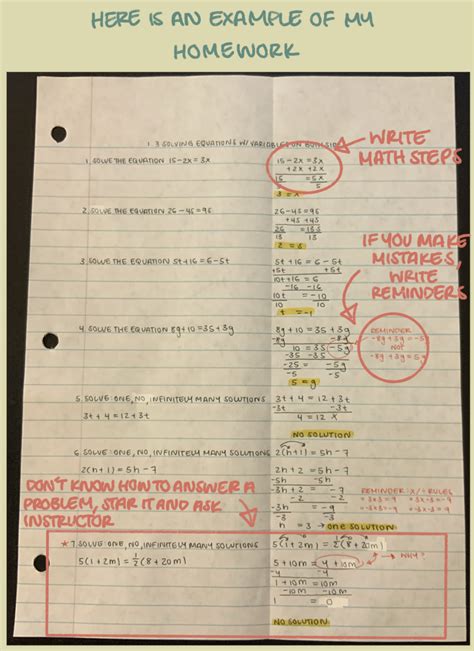 HERE IS AN EXAMPLE OF MY
HOMEWORK
1.3 SOLVING EQUATIONS W/ VARIABLES ON BOTH SIDES
WRITE
MATH STEPS
1. SOLVE THE EQUATION 15-2x=3x
15-2x=3x
+2x +2x
15 =5x
5 5
3=x
2. SOLVE THE EQUATION 26-4s=9s
26-4s=9s
+4s +4s
26 =13s
13 13
2=s
IF YOU MAKE
MISTAKES,
WRITE
REMINDERS
3. SOLVE THE EQUATION 5t+16=6-5t
5t+16=6-5t
+5t +5t
10t+16=6
-16 -16
10t =-10
10 10
t=-1
4. SOLVE THE EQUATION 8g+10=35+3g
8g+10=35+3g
-8g -8g
10=35-5g
-35 -35
-25=-5g
-5 -5
5=g
REMINDER
NOT
-8g+3g=5g
5. SOLVE: ONE, NO, INFINITELY MANY SOLUTIONS
3t+4=12+3t
3t+4=12+3t
-3t -3t
4=12
NO SOLUTION
6. SOLVE: ONE, NO, INFINITELY MANY SOLUTIONS
2(h+1)=5h-7
2(h+1)=5h-7
2h+2=5h-7
-5h -5h
-3h+2=-7
-2 -2
-3h =-9
-3 -3
h=3→ONE SOLUTION
REMINDER: X/÷ RULES
DON'T KNOW HOW TO ANSWER A
PROBLEM, STAR IT AND ASK
INSTRUCTOR
*7. SOLVE: ONE, NO, INFINITELY MANY SOLUTIONS
5(1+2m)=½(8+20m)
5(1+2m)=½(8+20m)
5+10m=4+10m
WHY?
-4 -4
1+10m=10m
-10m -10m
1 = 0
NO SOLUTION